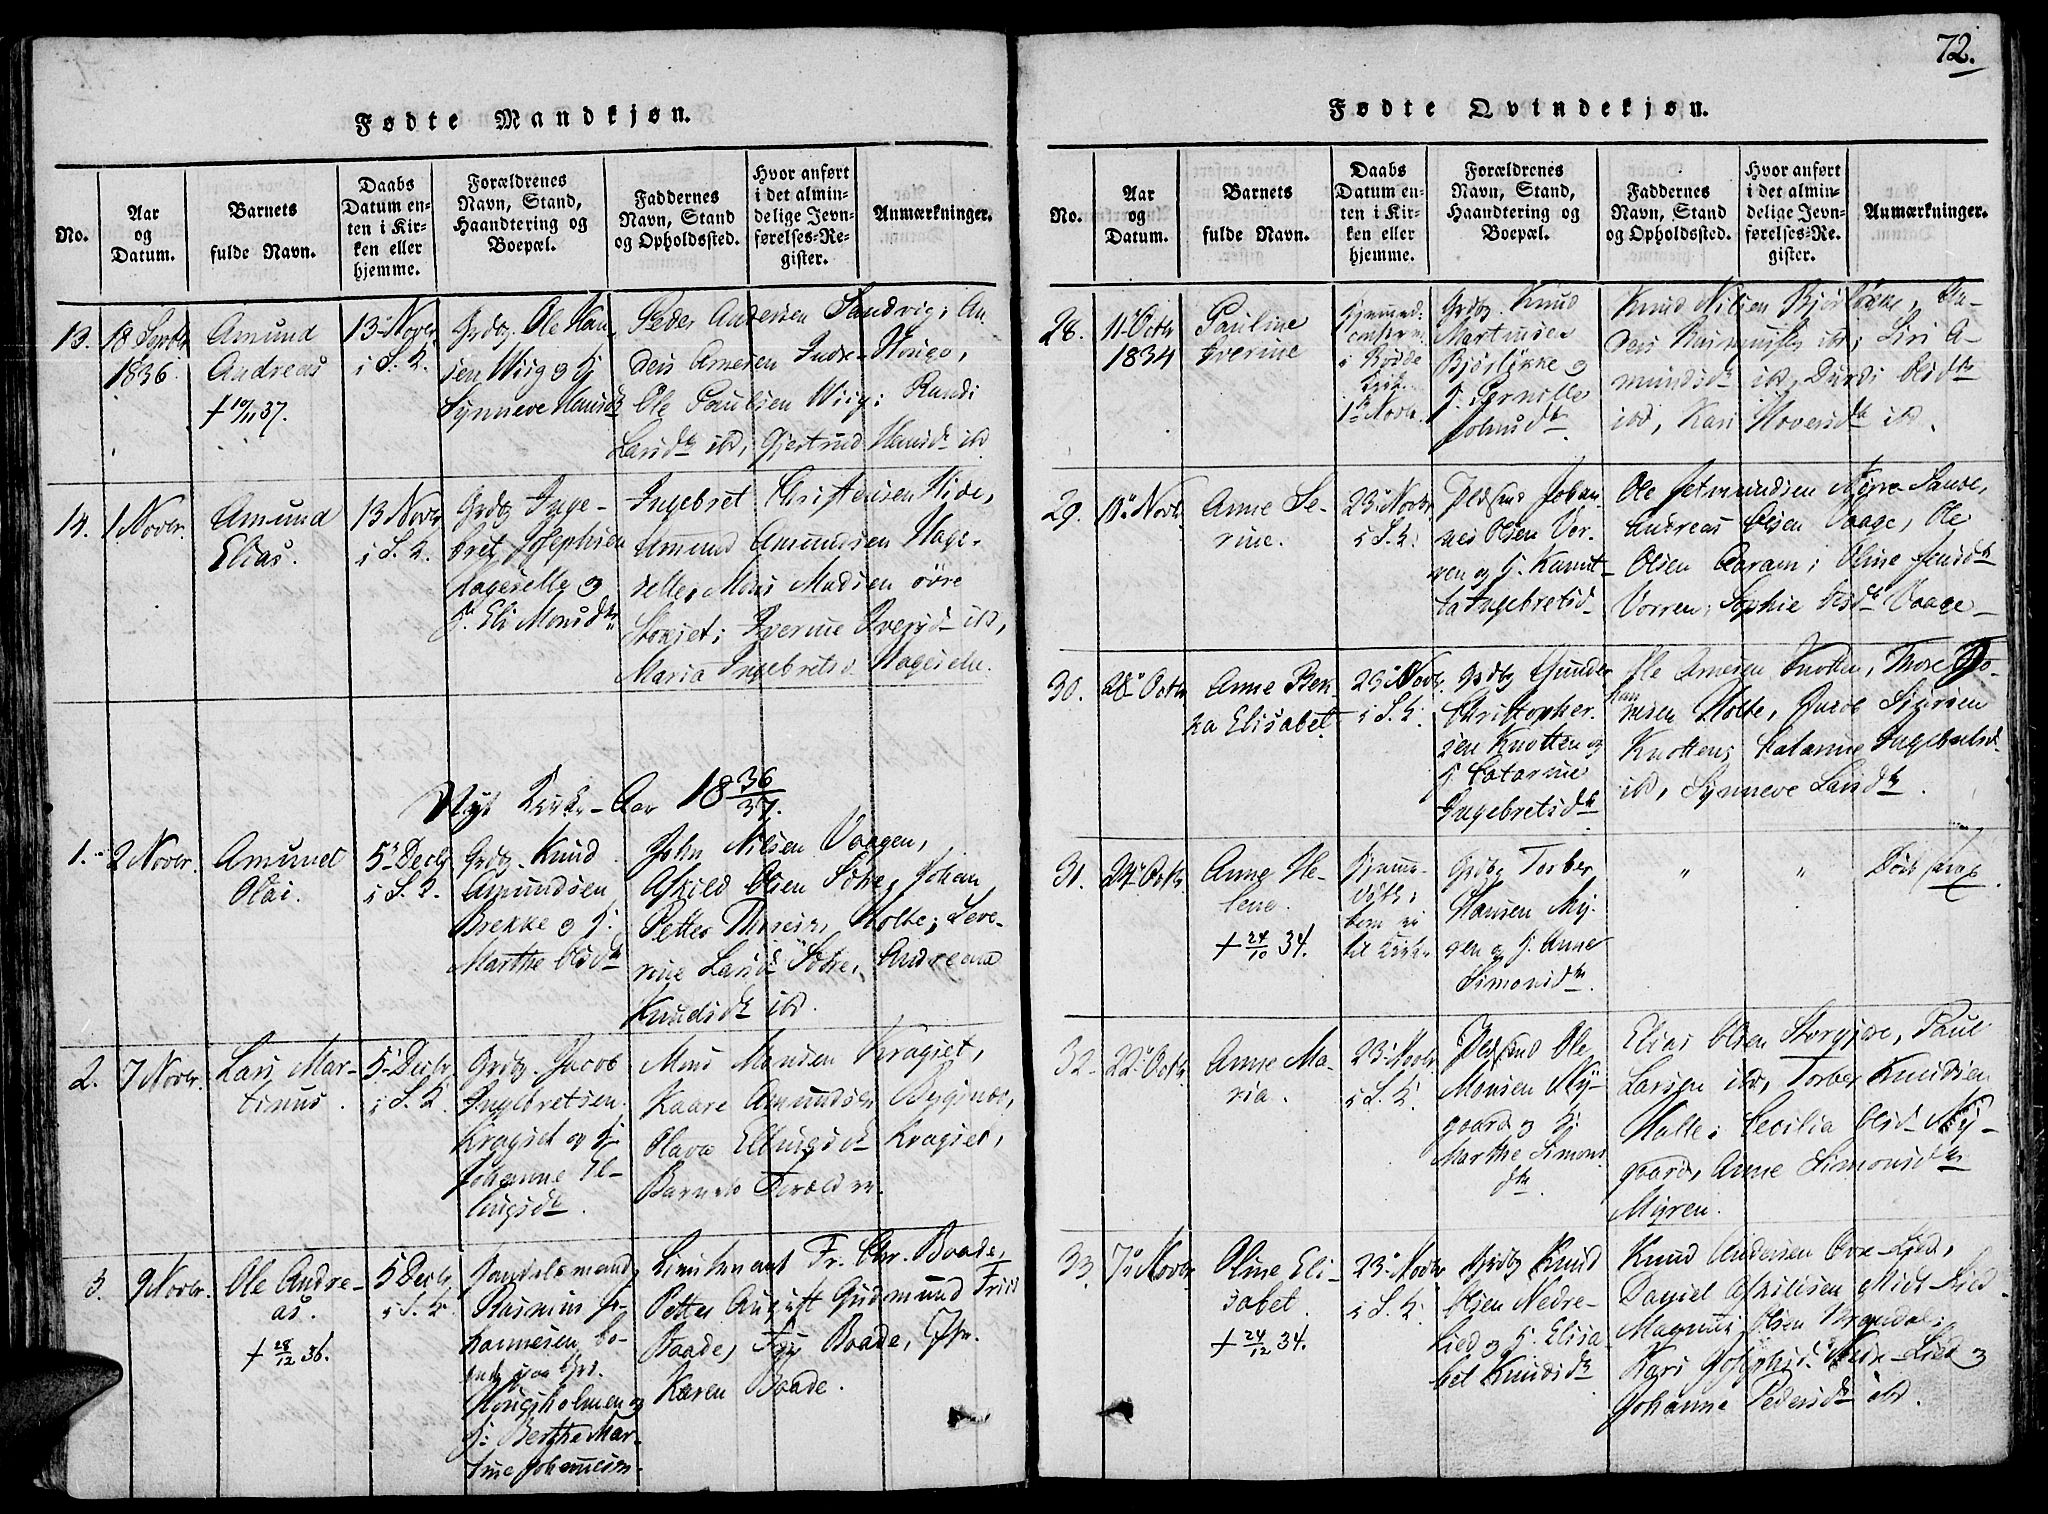 72.
Fødte Mandkjøn.
No.
Aar
og
Datum.
Barnets
fulde Navn.
Daabs
Datum en-
ten i Kir-
ken eller
hjemme.
Forældrenes
Navn, Stand,
Haandtering og
Boepæl.
Faddernes
Navn, Stand
og Opholdssted.
Hvor anført
i det almin-
delige Jevn-
førelses-Re-
gister.
Anmærkninger.
13.
18 Septbr
1836.
Amund
Andreas
+ 10/11 37.
13 Novbr
i S. K.
Grdbr. Ole Han
sen Wiig og H
Synneve Hansd
Peder Andersen Sandvig; An
ders Amesen Indre-
Ole Paulsen Wiig; Randi
Larsd ibd, Gjertrud Hansd ibd
14.
1 Novbr.
Amund
Elias.
13 Novbr
i S. K.
Grdbr Inge-
bret Josephsen
og
H. Eli Monsdtr
Ingebret Christensen Hide,
Amund Amundsen Hage-
selle, Mons Madsen øvre
Iverine Iversd ibd,
Maria Ingebretsd
Nyt Kirke-Aar 1836/37.
1.
2 Novbr.
Amund
Olai.
5 Decbr
i S. K.
Grdbr. Knud
Amundsen
Brekke og H.
Marthe Olsdtr
John Nilsen Vaagen,
Askild Olsen Johan
Petter Holte; Seve-
rine Larsd Andreane
Knudsdtr ibd.
2.
7 Novbr.
Lars Mar-
tinus.
5 Decbr
i S. K.
Grdbr. Jacob
Ingebretsen
Kragset og H
Johanne El-
lingsdtr.
Mons Monsen Kragset,
Kaare Amundsen
Olava Ellingsdtr Kragset,
Barnets Forældre.
3.
9 Novbr.
Ole Andre-
as.
+ 28/12 36.
5 Decbr
i S. K.
Handelsmand
Rasmus Jo-
hannesen bo-
ende paa
og
H: Berthe Mar-
tine
Lieutenant Fr. Chr. Baade,
Petter August Gudmund Friis
Baade, Baade, Jfr.
Karen Baade.
Fødte Qvindekjøn.
No.
Aar
og
Datum.
Barnets
fulde Navn.
Daabs
Datum en-
ten i Kir-
ken eller
hjemme.
Forældrenes
Navn, Stand,
Haandtering og
Boepæl.
Faddernes
Navn, Stand
og Opholdssted.
Hvor anført
i det almin-
delige Jevn-
førelses-Re-
gister.
Anmærkninger.
28.
11 Octbr
1834
Pauline
Iverine
i
1 Novbr.
Grdbr. Knud
Martinsen
Bjørløkke og
H. Pernille
Knud Nilsen Bjørløkke, An-
ders ibd, Siri A-
mundsdtr ibd, Durdi Olsdtr
ibd, Kari ibd.
29.
10 Novbr.
Anne Se-
rine.
23 Novbr
i S. K.
Johan-
nes Olsen Vor-
ren og H.
Ingebretsd
Ole Jetmundsen Sande,
Andreas Olsen Vaage, Ole
Olsen Aaram; Oline Jensdtr
Vorren, Sophie Olsdtr Vaage
30.
28 Octbr
Anne Ben-
ta Elisabet.
23 Novbr.
i S. K.
Grdbr Gunder
Christopher-
sen Knotten og
H. Catarine
Ingebretsdtr
Ole Amesen Knotten, Thore Jo-
han
nesen Holte, Jacob
Knotten; Catarine Ingebretsd
ibd, Synneve Larsdtr.
31.
24 Octbr
Anne He-
lene.
+ 24/10 34.
Hjemme-
døbt;
kom ei
til Kirke
Grdbr Torber
Hansen My-
ren og H. Anne
Simonsdtr.
"
"
Død strax
32.
22 Octbr
Anne Ma-
ria.
23 Novbr
i S. K.
Ole
Monsen Ny-
gaard og H:
Marthe Simons
dtr.
Elias Olsen Paul
Larsen ibd, Torber Knudsen
Halle; Cecilia Olsd Ny-
gaard, Anne Simonsdtr
Myren.
33.
7 Novbr
Oline Eli-
sabet.
+ 24/12 34.
23 Novbr
i S. K.
Grdbr Knud
Olsen Nedre-
Lied og H. Elisa
bet Knudsdtr
Knud Andersen Øvre-Lied,
Daniel Midt-Lied
Magnus Olsen
Kari Josephsd. Nedre-Lied og
Johanne Pedersdtr ibd.